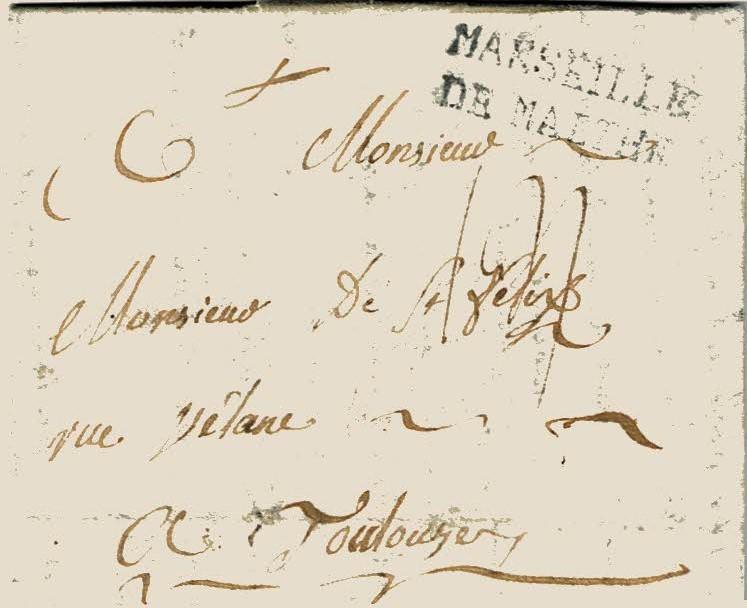 MARSEILLE
DE MALTHE
Monsieur
Monsieur De St felix
rue Vélane
A Toulouze